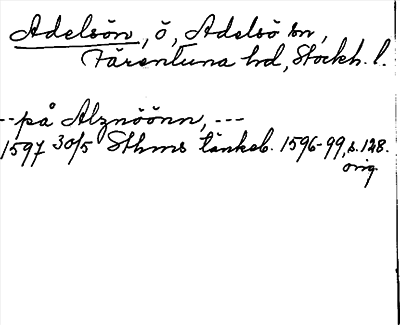 Adelsön, ö, Adelsö sn,
Färentuna hd, Stockh. l.
-- på Alznöönn, ---
1597 30/5 Sthms tänkeb. 1596-99, s. 128.
orig.